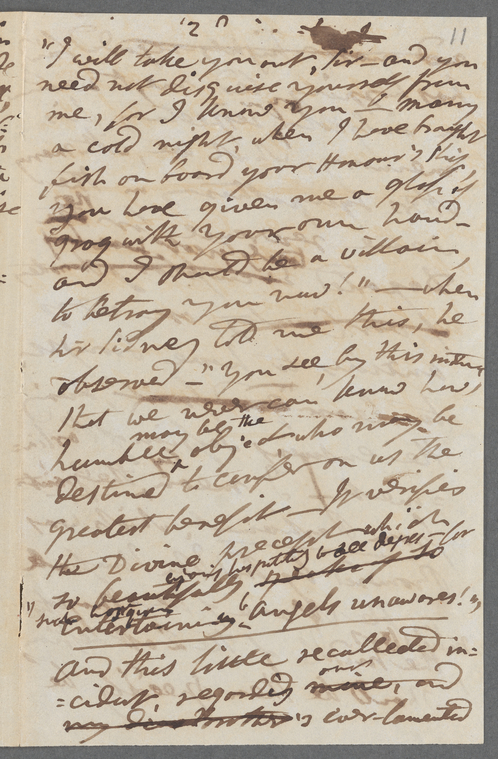 11
"I will take you out, Sir — and you
need not disguise yourself from
me, for I know you — & many
a cold night, when I have brought
fish on board your Honour's Ship,
you have given me a glass of
grog with your own hand —
and I should be a villain,
to betray you now!" — when
Sir Sidney told me this, he
observed — "You see by this
that we never can know how
may be the
humble object who may be
destined to confer on us the
greatest benefit — It verifies
the Divine precept which
so beautifully
hospitality to all
entertaining angels unawares!"
And this little recalled in=
=cident, regarded our mine, and
my dear Brother's ever-lamented